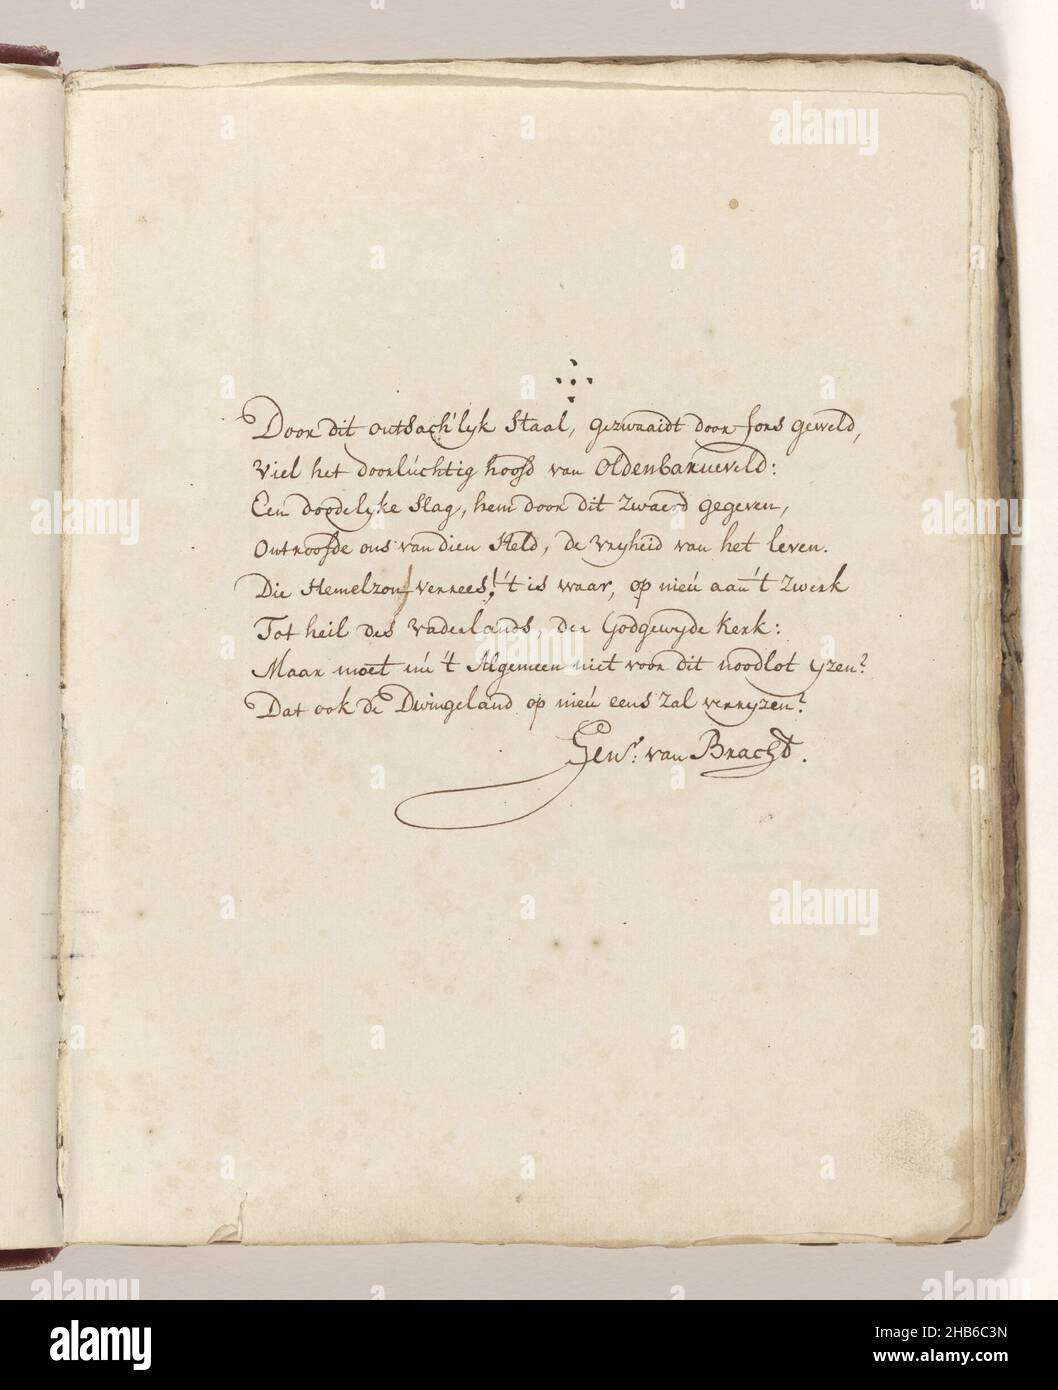 Door dit ontsach'lyk Staal, gezwaaidt door fors geweld,
Viel het doorlúchtig hoofd van Oldenbarneveld:
Een doodelyke Slag, hem door dit Zwaerd gegeven,
Ontroofde ons van dien Held, de Vryheid van het leven.
Die Hemelzon verrees! 't is waar, op nieú aan 't Zwerk
Tot heil des Vaderlands, der Godgewyde Kerk:
Maar moet in 't Algemeen niet voor dit noodlot yzen?
Dat ook de Dwingeland op nieú eens Zal verryzen?
van Bracht.
alamy
Image ID: 2HB6C3N
www.alamy.com